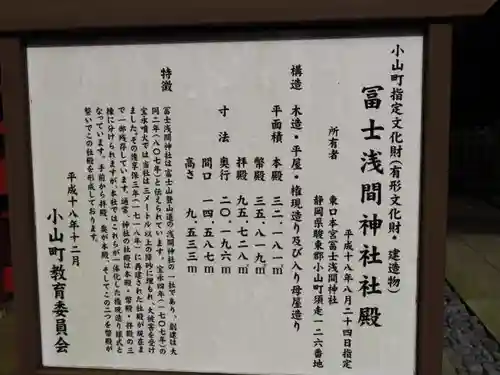 小山町指定文化財(有形文化財・建造物)
冨士浅間神社社殿
平成十八年八月二十四日指定
所有者 東口本宮冨士浅間神社
静岡県駿東郡小山町須走一二六番地
構造 木造・平屋・権現造り及び入り母屋造り
平面積 本殿 三二.一八一㎡
幣殿 三五.八一九㎡
拝殿 九五.七二八㎡
寸法 奥行 二〇.一九六m
間口 一四.五八七m
高さ 九.五三三m
特徴
冨士浅間神社は富士山登山道の浅間神社の一社であり、創建は大
同二年(八〇七年)と伝えられています。宝永四年(一七〇七年)の
宝永噴火では当社は三メートル以上の降砂に埋もれ、大被害を受け
ました。その後享保三年(一七一八年)に再建された社殿が現在ま
で一部残存しています。通常、神社の社殿は本殿・幣殿・拝殿の三
棟に分けられますが、本社では、これらが一体化した権現造り様式と
なっています。手前から拝殿、奥が本殿、そしてこの二つを幣殿が
繋いでこの社殿を形成しております。
平成十八年十二月
小山町教育委員会